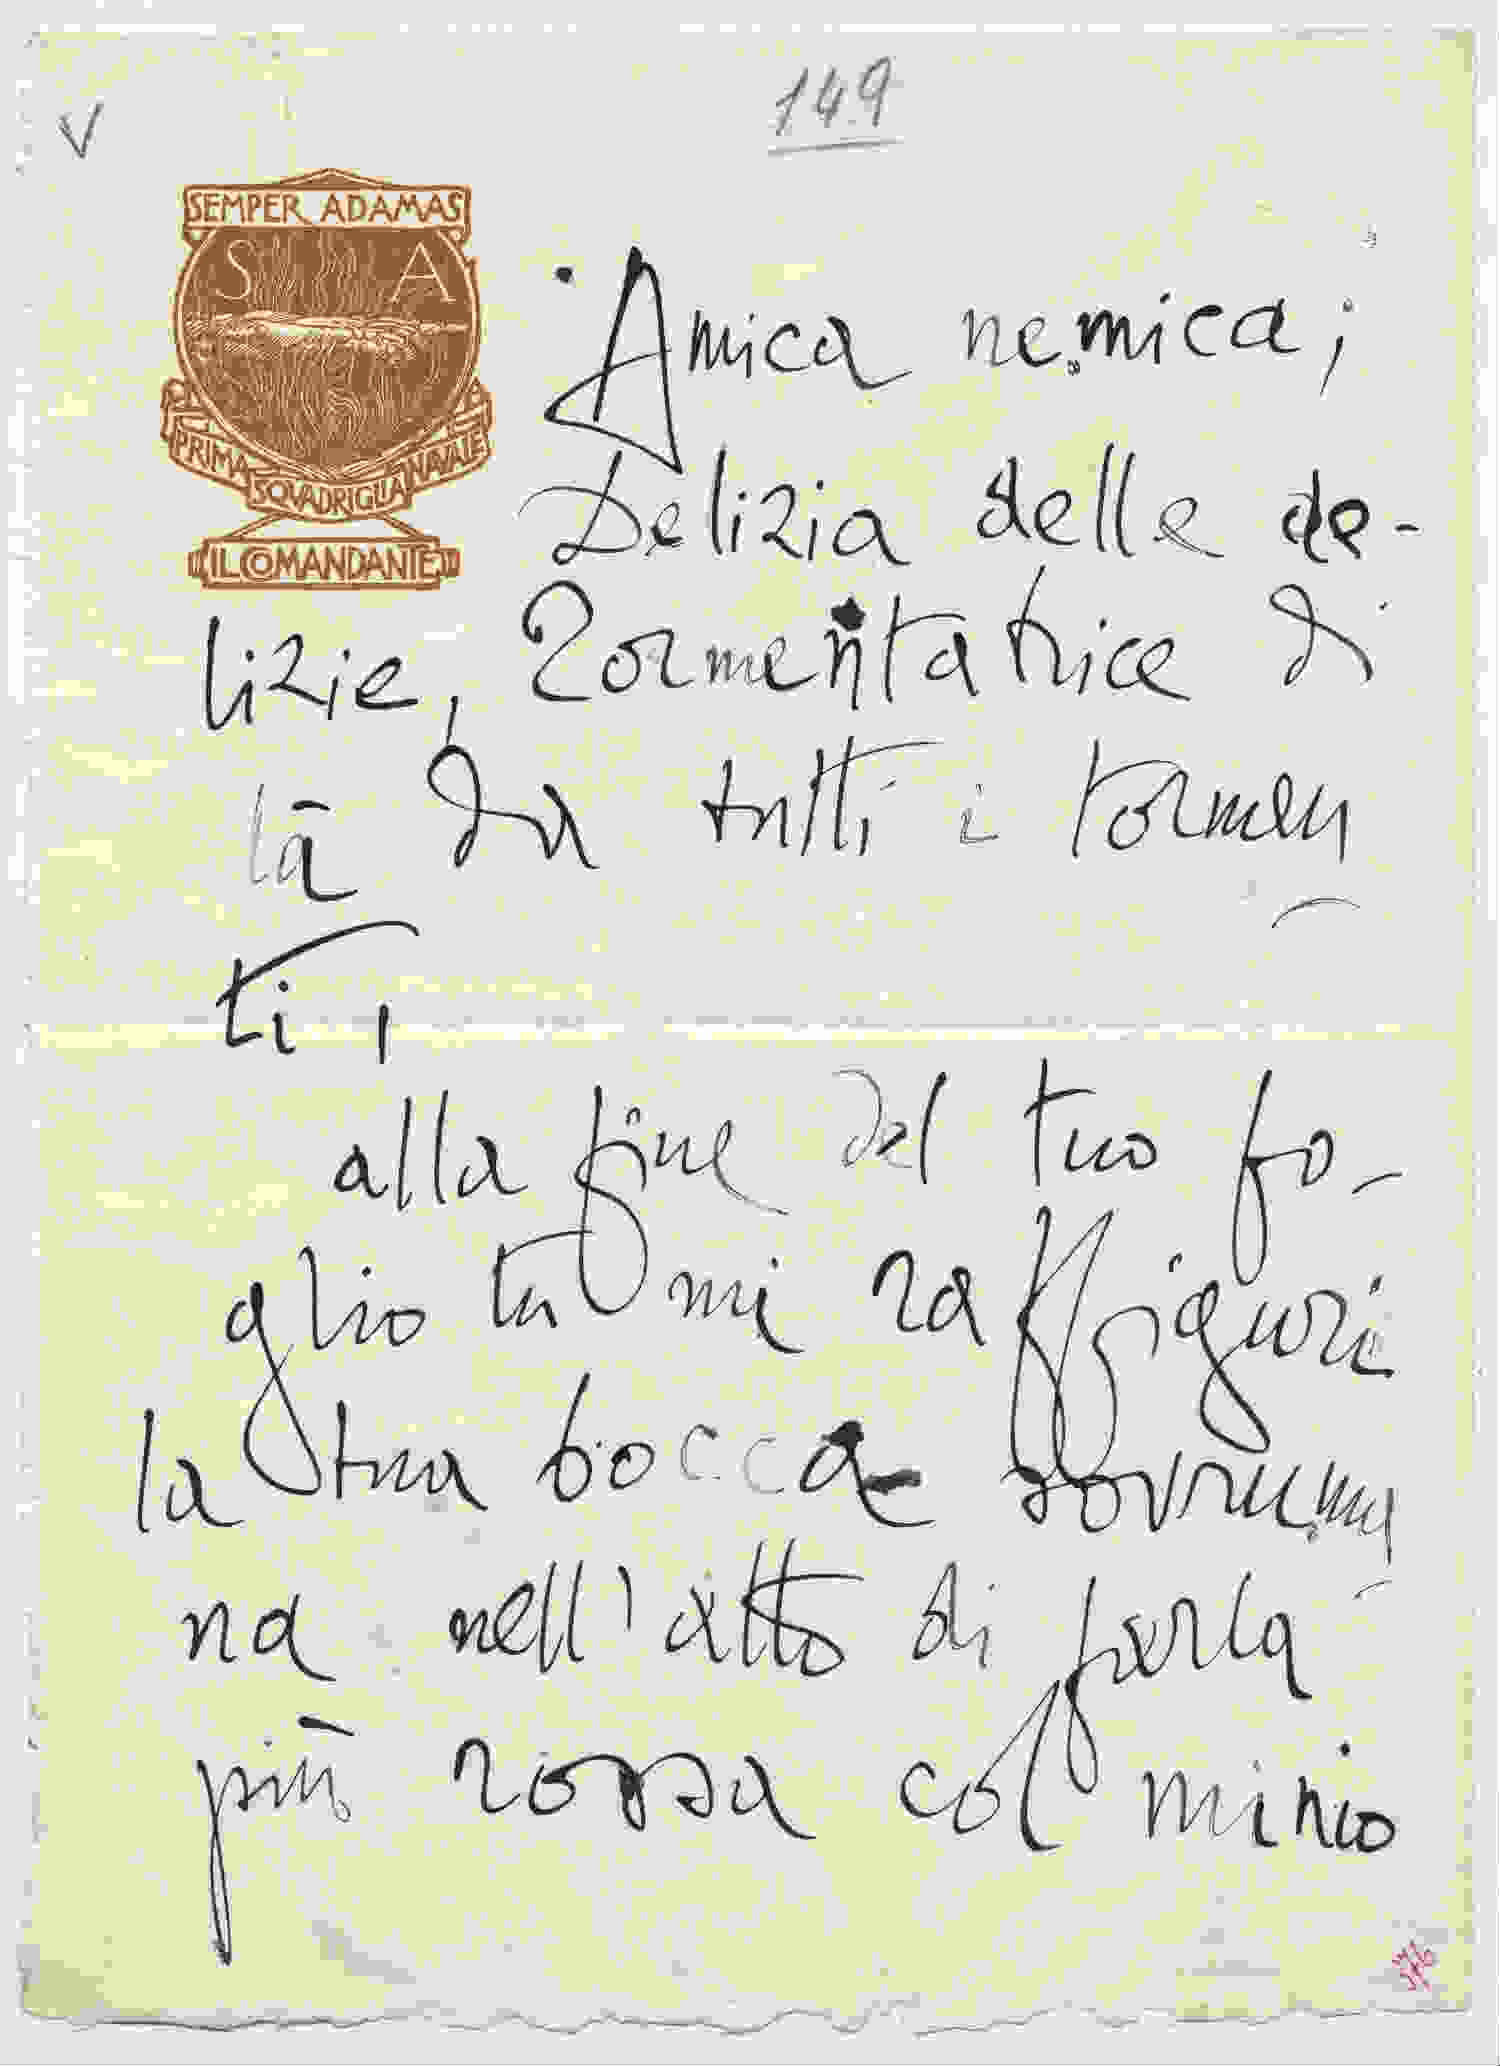 149
V
SEMPER ADAMAS
S A
PRIMA SQVADRIGLIA NAVALE
IL COMANDANTE
Amica nemica,
Delizia delle de-
lizie, Tormentatrice di
là da tutti i tormen
ti,
alla fine del tuo fo-
glio tu mi raffiguri
la tua bocca sovruma
na nell'atto di farla
più rossa col minio